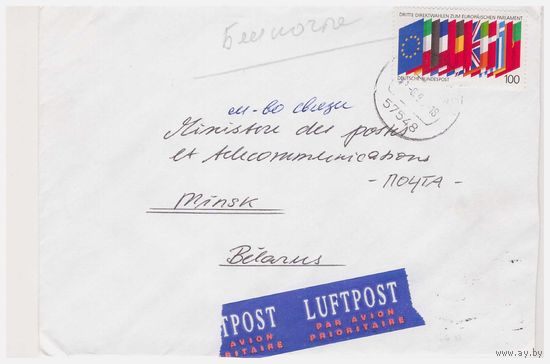 DRITTE DIREKTWAHLEN ZUM EUROPÄISCHEN PARLAMENT
DEUTSCHE BUNDESPOST
100
57548
м-во связи
Ministère des postes
et télécommunications
- ПОЧТА -
Minsk
Bélarus
TPOST LUFTPOST
AVION PAR AVION
RITAIRE PRIORITAIRE
www.ay.by